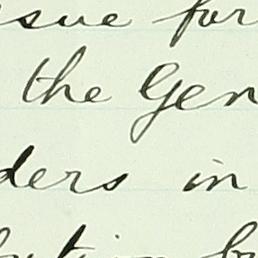 sue for
the Gen
ders in